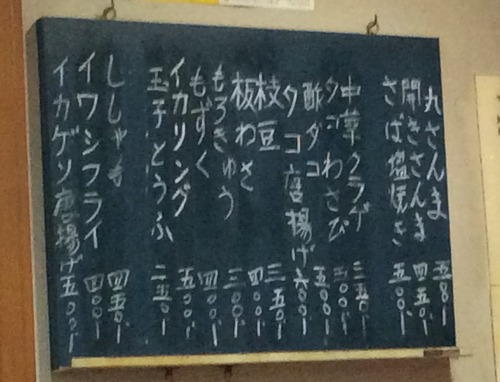 丸さんま 五八〇-
開きさんま 四五〇-
さば塩焼き 五〇〇-
中華クラゲ 三五〇-
タコわさび 五〇〇-
酢ダコ 五〇〇-
タコ唐揚げ 六〇〇-
枝豆 三五〇-
板わさ 四〇〇-
もろきゅう 三〇〇-
もずく 四〇〇-
イカリング 五〇〇-
玉子とうふ 二五〇-
ししゃも 四五〇-
イワシフライ 四〇〇-
イカゲソ唐揚げ 五〇〇-